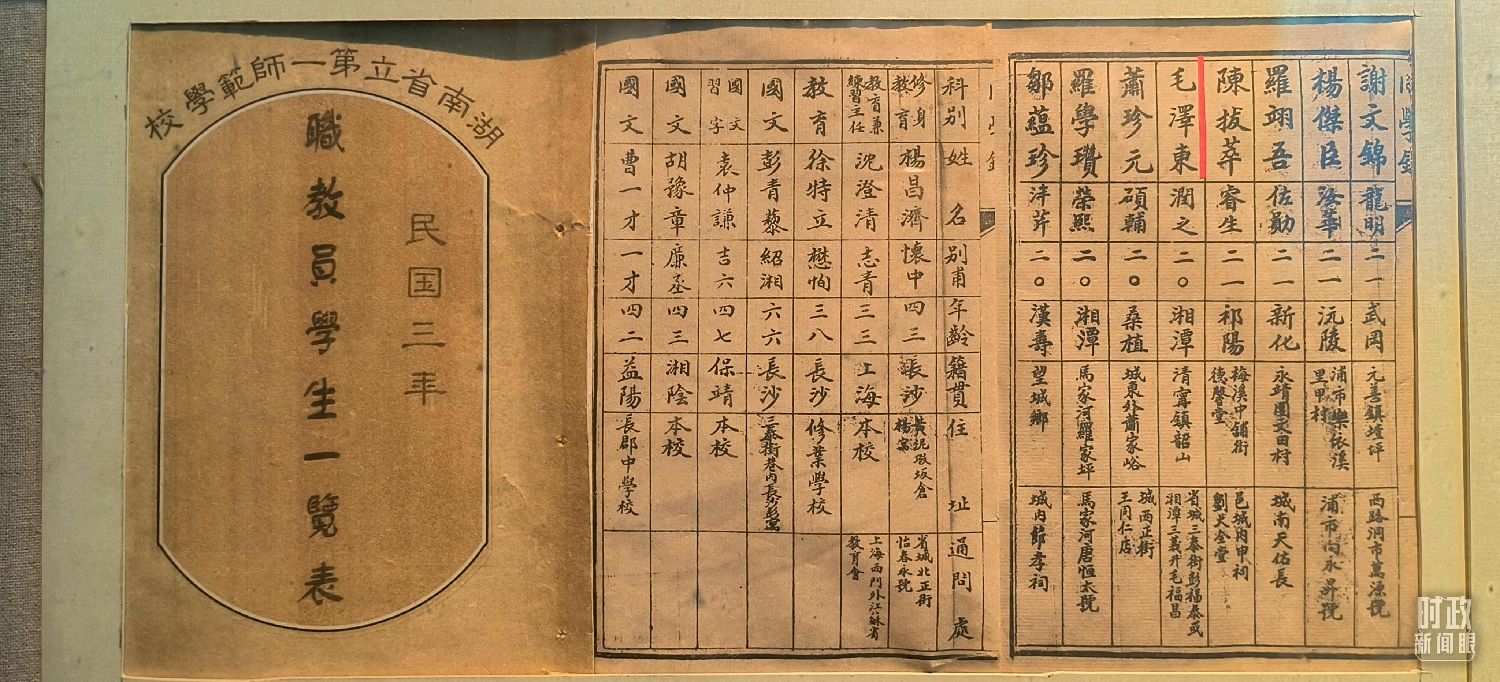 湖南省立第一師範學校
民国三年
職教員學生一覽表
科別 姓名 別甫 年齡 籍貫 住址 通問處
修身教育 楊昌濟 懷中 四三 長沙 黄泥坂倉楊寓 省城北正街怡春永號
教育兼練習主任 沈澄清 志青 三三 上海 本校 上海西門外江蘇省教育會
教育 徐特立 懋恂 三八 長沙 修業學校
國文 彭青藜 紹湘 六六 長沙 三泰街巷内長沙彭寓
國文習字 袁仲謙 吉六 四七 保靖 本校
國文 胡豫章 廉丞 四三 湘陰 本校
國文 曹一才 一才 四二 益陽 長郡中學校
同學錄
謝文錦 龍明 二一 武岡 元善鎮 西路洞市萬源號
楊傑臣 汝華 二一 沅陵 浦市樂依溪里甲村 浦市向永昇號
羅翊吾 佐勛 二一 新化 永靖團文田村 城南天佑長
陳拔萃 睿生 二一 祁陽 梅溪中舖街德馨堂 邑城内申祠劉大全堂
毛澤東 潤之 二〇 湘潭 清寧鎮韶山 省城三泰街彭福泰或湘潭三義升毛福昌
蕭珍元 碩輔 二〇 桑植 城東外蕭家峪 城西正街王同仁店
羅學瓚 榮熙 二〇 湘潭 馬家河羅家坪 馬家河唐恒太號
鄒蘊珍 泮芹 二〇 漢壽 望城鄉 城内節孝祠
时政
新闻眼